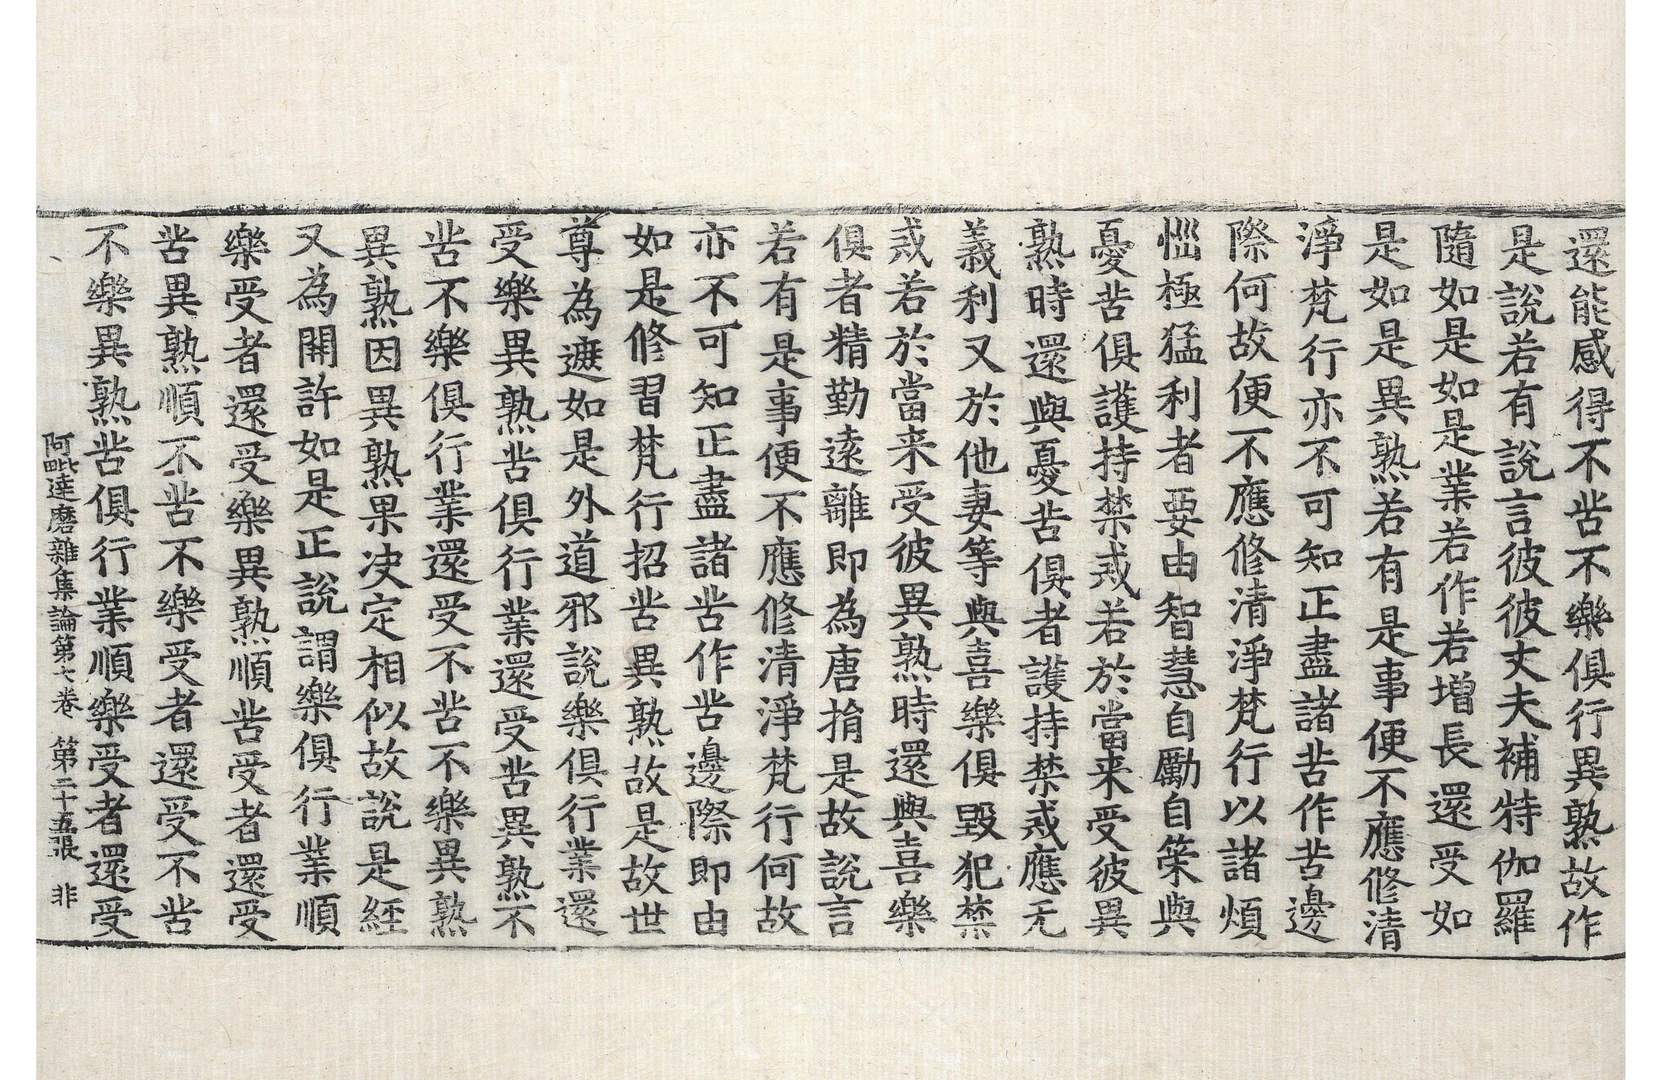 還能感得不苦不樂俱行異熟故作
是說若有說言彼彼丈夫補特伽羅
隨如是如是業若作若增長還受如
是如是異熟若有是事便不應修清
淨梵行亦不可知正盡諸苦作苦邊
際何故便不應修清淨梵行以諸煩
惱極猛利者要由智慧自勵自策與
憂苦俱護持禁戒若於當来受彼異
熟時還與憂苦俱者護持禁戒應无
義利又於他妻等與喜樂俱毀犯禁
戒若於當来受彼異熟時還與喜樂
俱者精勤遠離即為唐捐是故說言
若有是事便不應修清淨梵行何故
亦不可知正盡諸苦作苦邊際即由
如是修習梵行招苦異熟故是故世
尊為遮如是外道邪說樂俱行業還
受樂異熟苦俱行業還受苦異熟不
苦不樂俱行業還受不苦不樂異熟
異熟因異熟果决定相似故說是經
又為開許如是正說謂樂俱行業順
樂受者還受樂異熟順苦受者還受
苦異熟順不苦不樂受者還受不苦
不樂異熟苦俱行業順樂受者還受
阿毗達磨雜集論第七卷 第二十五張 非